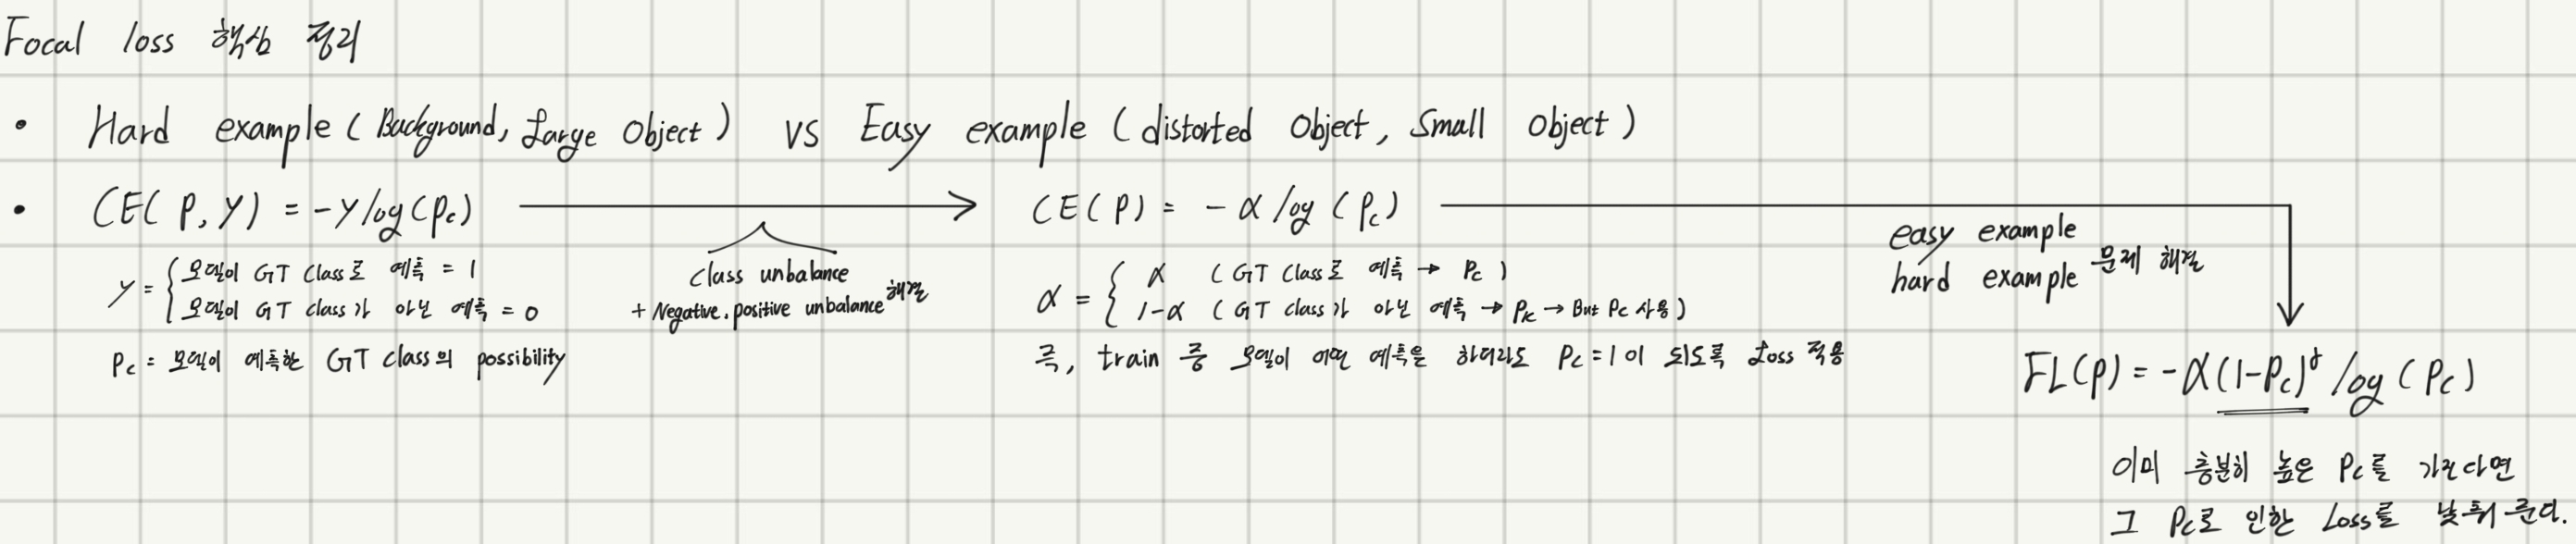 Focal loss 핵심 정리
• Hard example ( Background, Large Object ) VS Easy example ( distorted Object, Small Object )
• CE( P, y ) = -y log(Pc)
y = { 모델이 GT Class로 예측 = 1
모델이 GT class가 아닌 예측 = 0
Pc = 모델이 예측한 GT class의 possibility
class unbalance
+ Negative.positive unbalance 해결
CE(P) = - α log (Pc)
α = { α ( GT Class로 예측 → Pc )
1-α ( GT class가 아닌 예측 → Pk → But Pc 사용 )
즉, train 중 모델이 어떤 예측을 하더라도 Pc = 1 이 되도록 Loss 적용
easy example
hard example 문제 해결
FL(p) = -α(1-Pc)^γ log (Pc)
이미 충분히 높은 Pc를 가진다면
그 Pc로 인한 Loss를 낮춰 준다.